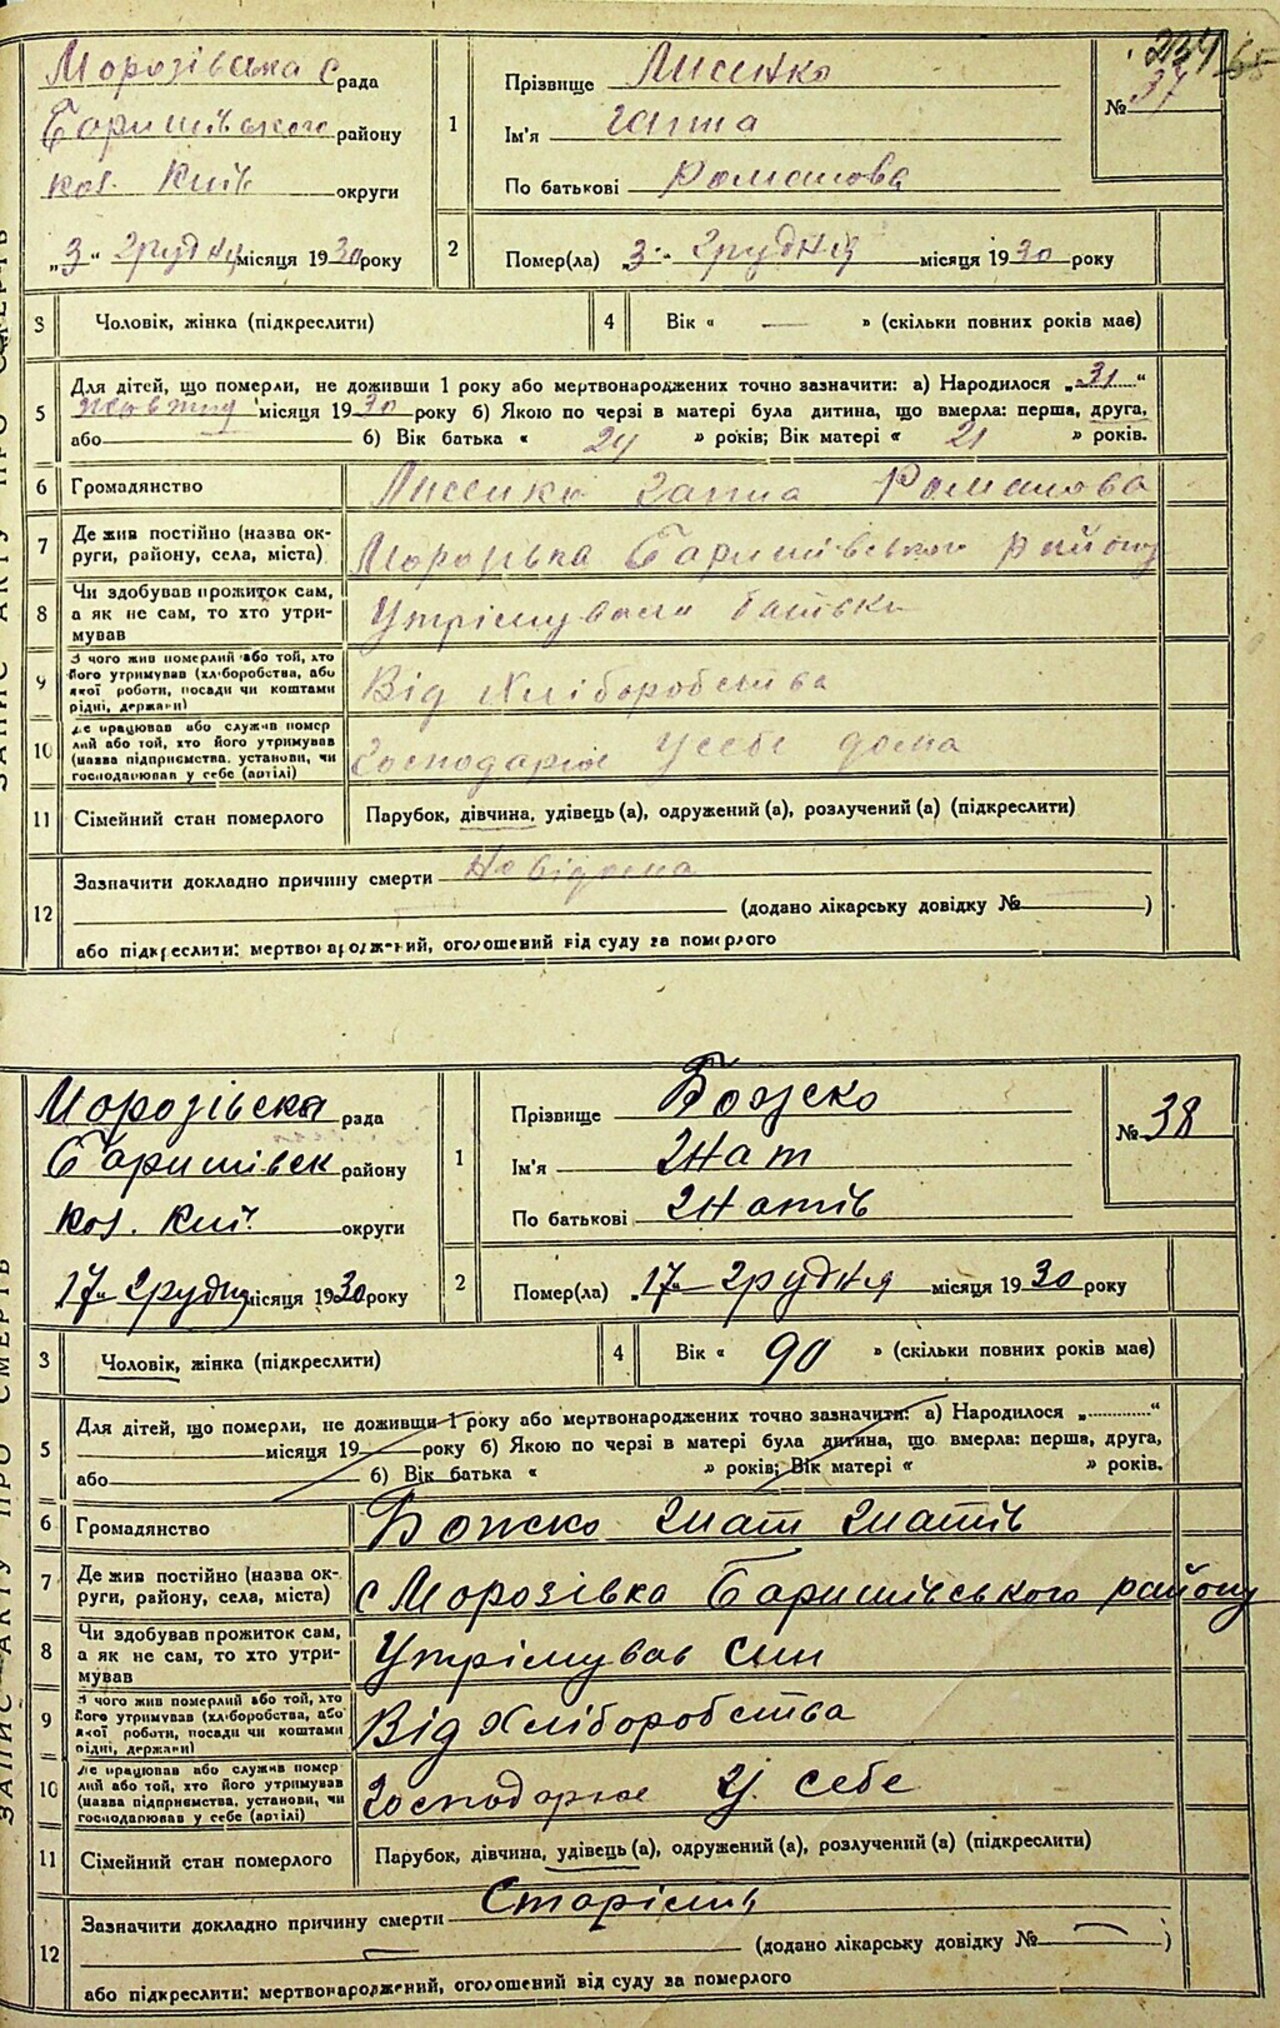 234
Морозівська с рада
Баришівського району
кол. Київ. округи
„3“ грудня місяця 1930 року
1
Прізвище Лисенко
Ім'я Ганна
По батькові Романова
№ 37
2
Помер(ла) „3“ грудня місяця 1930 року
3 Чоловік, жінка (підкреслити)
4 Вік « — » (скільки повних років мав)
5
Для дітей, що померли, не доживши 1 року або мертвонароджених точно зазначити: а) Народилося „31“
жовтня місяця 1930 року б) Якою по черзі в матері була дитина, що вмерла: перша, друга,
або б) Вік батька « 24 » років; Вік матері « 21 » років.
6 Громадянство Лисенко Ганна Романова
7 Де жив постійно (назва ок-
руги, району, села, міста)
Баришівського району
8 Чи здобував прожиток сам,
а як не сам, то хто утри-
мував
Утрімували батьки
9 З чого жив померлий або той, хто
його утримував (хліборобства, або
якої роботи, посади чи коштами
рідні, держави)
Від хліборобства
10 Де працював або служив помер
лий або той, хто його утримував
(назва підприємства, установи, чи
господарював у себе (артілі)
Господарює у себе дома
11 Сімейний стан померлого Парубок, дівчина, удівець (а), одружений (а), розлучений (а) (підкреслити)
12
Зазначити докладно причину смерти Не відома
(додано лікарську довідку № — )
або підкреслити: мертвонароджений, оголошений від суду за померлого
ЗАПИС АКТУ ПРО СМЕРТЬ
Морозівська рада
Баришівськ району
кол. Київ. округи
„17“ грудня місяця 1930 року
1
Прізвище Божко
Ім'я Гнат
По батькові Гнатів
№ 38
2
Помер(ла) „17“ грудня місяця 1930 року
3 Чоловік, жінка (підкреслити)
4 Вік « 90 » (скільки повних років мав)
5
Для дітей, що померли, не доживши 1 року або мертвонароджених точно зазначити: а) Народилося „.............“
місяця 19 року б) Якою по черзі в матері була дитина, що вмерла: перша, друга,
або б) Вік батька « » років; Вік матері « » років.
6 Громадянство Божко Гнат Гнатів
7 Де жив постійно (назва ок-
руги, району, села, міста)
с Морозівка Баришівського району
8 Чи здобував прожиток сам,
а як не сам, то хто утри-
мував
Утрімував син
9 З чого жив померлий або той, хто
його утримував (хліборобства, або
якої роботи, посади чи коштами
рідні, держави)
Від хліборобства
10 Де працював або служив помер
лий або той, хто його утримував
(назва підприємства, установи, чи
господарював у себе (артілі)
Господарює у себе
11 Сімейний стан померлого Парубок, дівчина, удівець (а), одружений (а), розлучений (а) (підкреслити)
12
Зазначити докладно причину смерти
(додано лікарську довідку № — )
або підкреслити: мертвонароджений, оголошений від суду за померлого
ЗАПИС АКТУ ПРО СМЕРТЬ